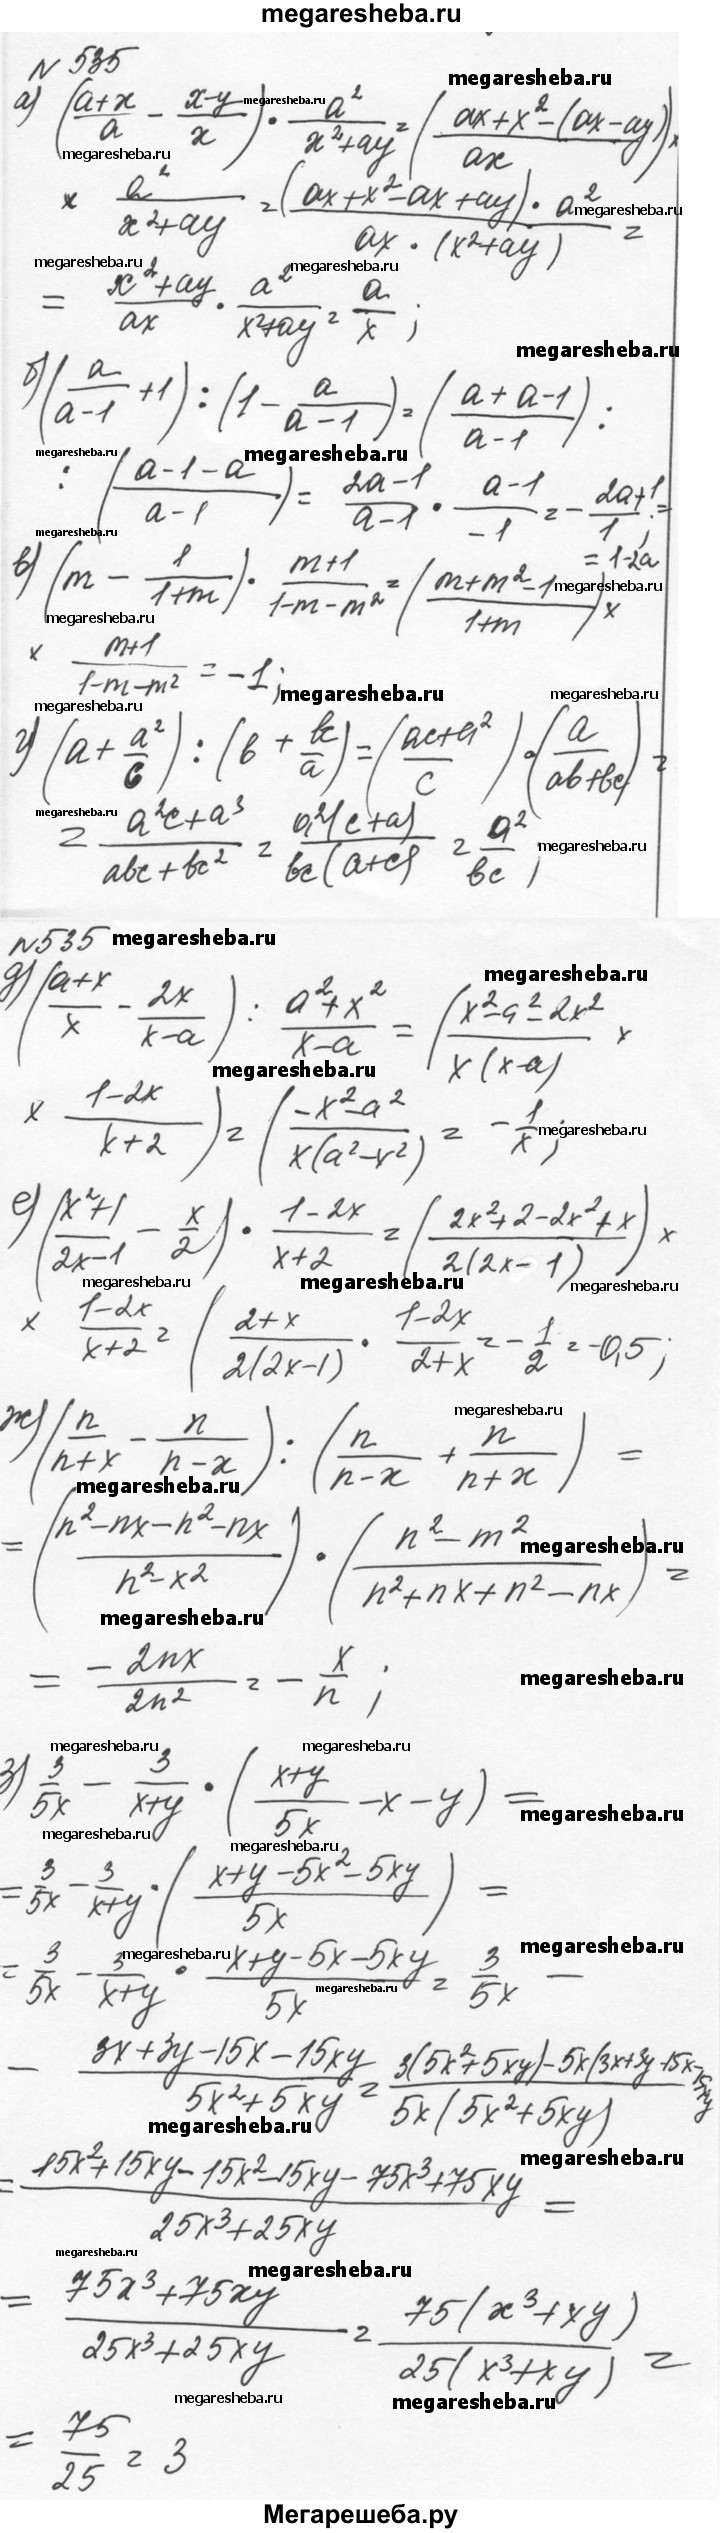 megaresheba.ru
N 535
а) ((a+x)/a - (x-y)/x) · a²/(x²+ay) = ((ax+x²-(ax-ay))/ax) ×
megaresheba.ru megaresheba.ru megaresheba.ru
× a²/(x²+ay) = (ax+x²-ax+ay) · a²/(ax · (x²+ay)) =
megaresheba.ru megaresheba.ru megaresheba.ru
= (x²+ay)/ax · a²/(x²+ay) = a/x ;
megaresheba.ru
б) (a/(a-1) + 1) : (1 - a/(a-1)) = ((a+a-1)/(a-1)) :
megaresheba.ru megaresheba.ru
: ((a-1-a)/(a-1)) = (2a-1)/(a-1) · (a-1)/-1 = - (2a+1)/1 ; =
megaresheba.ru = 1-2a
в) (m - 1/(1+m)) · (m+1)/(1-m-m²) = ((m+m²-1)/(1+m)) ×
megaresheba.ru megaresheba.ru
× (m+1)/(1-m-m²) = -1 ;
megaresheba.ru megaresheba.ru megaresheba.ru
г) (a + a²/c) : (в + вc/a) = ((ac+a²)/c) · (a/(aв+вc)) =
megaresheba.ru
= (a²c+a³)/(aвc+вc²) = a²(c+a)/(вc(a+c)) = a²/вc ;
megaresheba.ru
N 535 megaresheba.ru
д) ((a+x)/x - 2x/(x-a)) : (a²+x²)/(x-a) = ((x²-a²-2x²)/(x(x-a)) ×
megaresheba.ru megaresheba.ru
× (1-2x)/(x+2)) = ((-x²-a²)/(x(a²-x²)) = - 1/x ;
megaresheba.ru
е) ((x²+1)/(2x-1) - x/2) · (1-2x)/(x+2) = ((2x²+2-2x²+x)/(2(2x-1))) ×
megaresheba.ru megaresheba.ru megaresheba.ru
× (1-2x)/(x+2) = ((2+x)/(2(2x-1)) · (1-2x)/(2+x) = - 1/2 = -0,5 ;
ж) (n/(n+x) - n/(n-x)) : (n/(n-x) + n/(n+x)) =
megaresheba.ru megaresheba.ru
= ((n²-nx-n²-nx)/(n²-x²)) · ((n²-m²)/(n²+nx+n²-nx)) =
megaresheba.ru megaresheba.ru
= -2nx/2n² = - x/n ;
megaresheba.ru
megaresheba.ru megaresheba.ru
з) 3/5x - 3/(x+y) · ((x+y)/5x - x - y) =
megaresheba.ru megaresheba.ru megaresheba.ru
= 3/5x - 3/(x+y) · ((x+y-5x²-5xy)/5x) =
megaresheba.ru megaresheba.ru
= 3/5x - 3/(x+y) · (x+y-5x-5xy)/5x = 3/5x -
megaresheba.ru
- (3x+3y-15x-15xy)/(5x²+5xy) = (3(5x²+5xy)-5x(3x+3y-15x-15xy)/(5x(5x²+5xy))
megaresheba.ru megaresheba.ru
= (15x²+15xy-15x²-15xy-75x³+75xy)/(25x³+25xy) =
megaresheba.ru megaresheba.ru
= (75x³+75xy)/(25x³+25xy) = 75(x³+xy)/(25(x³+xy)) =
megaresheba.ru megaresheba.ru
= 75/25 = 3
Мегарешеба.ру